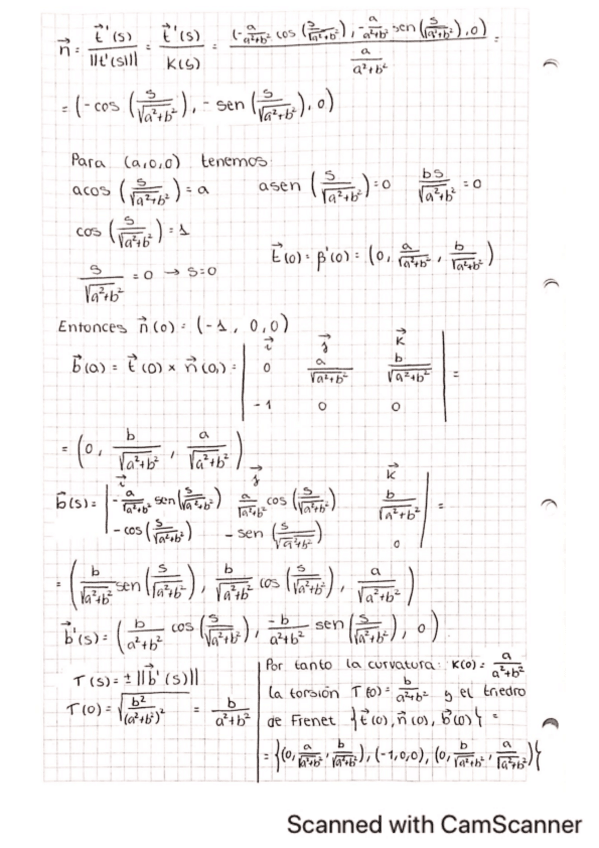 n⃗ = t⃗'(s) / ||t'(s)|| = t⃗'(s) / K(s) = (-a/(a²+b²) cos (s/√(a²+b²)), -a/(a²+b²) sen (s/√(a²+b²)), 0) / (a/(a²+b²)) =
= (-cos (s/√(a²+b²)), - sen (s/√(a²+b²)), 0)
Para (a,0,0) tenemos
acos (s/√(a²+b²)) = a    asen (s/√(a²+b²)) = 0    bs/√(a²+b²) = 0
cos (s/√(a²+b²)) = 1
s/√(a²+b²) = 0 → s=0    t⃗(0) = β'(0) = (0, a/√(a²+b²), b/√(a²+b²))
Entonces n⃗(0) = (-1, 0,0)
b⃗(0) = t⃗(0) × n⃗(0) = | i⃗ j⃗ k⃗ ; 0 a/√(a²+b²) b/√(a²+b²) ; -1 0 0 | =
= (0, b/√(a²+b²), a/√(a²+b²))
b⃗(s) = | i⃗ j⃗ k⃗ ; -a/√(a²+b²) sen(s/√(a²+b²)) a/√(a²+b²) cos(s/√(a²+b²)) b/√(a²+b²) ; -cos(s/√(a²+b²)) -sen(s/√(a²+b²)) 0 | =
= (b/√(a²+b²) sen (s/√(a²+b²)), b/√(a²+b²) cos (s/√(a²+b²)), a/√(a²+b²))
b⃗'(s) = (b/(a²+b²) cos (s/√(a²+b²)), -b/(a²+b²) sen (s/√(a²+b²)), 0)
T(s) = ± ||b⃗'(s)||
T(0) = √(b²/(a²+b²)²) = b/(a²+b²)
Por tanto la curvatura: K(0) = a/(a²+b²)
la torsión T(0) = b/(a²+b²) y el triedro
de Frenet {t⃗(0), n⃗(0), b⃗(0)} =
= {(0, a/√(a²+b²), b/√(a²+b²)), (-1,0,0), (0, b/√(a²+b²), a/√(a²+b²))}
Scanned with CamScanner